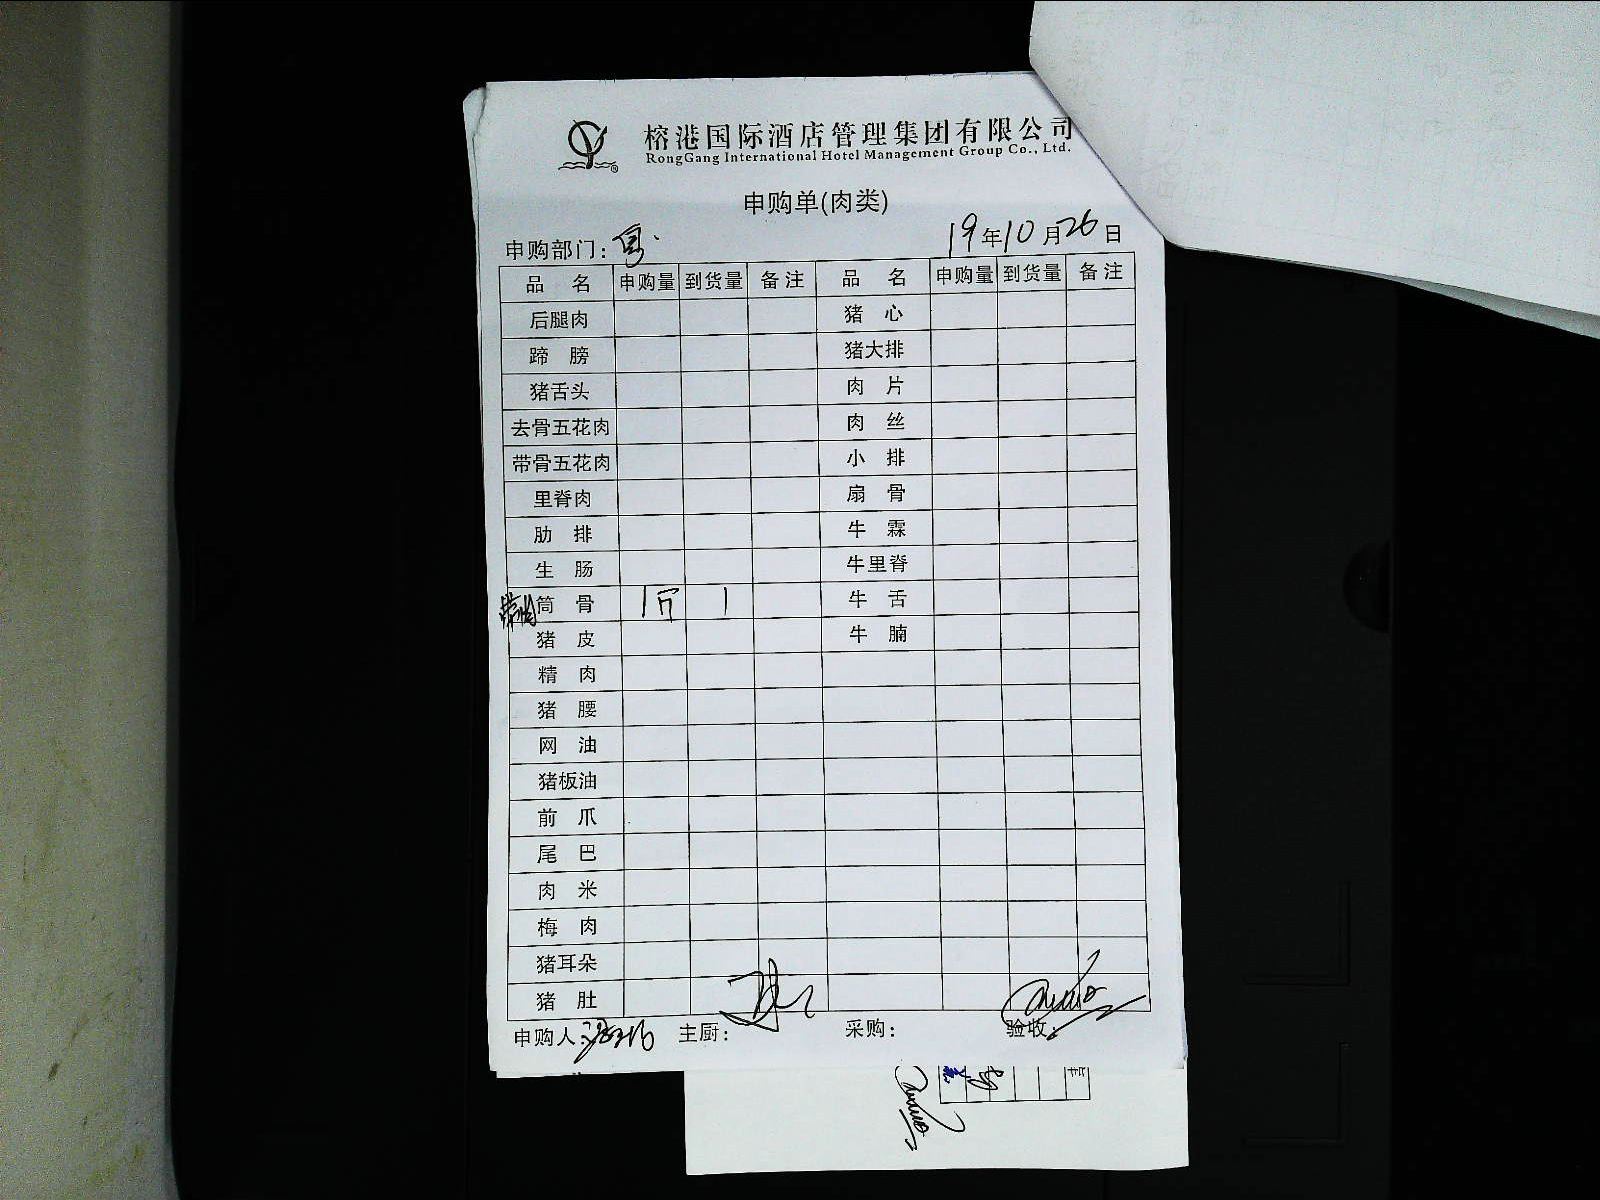 榕港国际酒店管理集团有限公司
RongGang International Hotel Management Group Co., Ltd.
申购单(肉类)
申购部门: 19年10月26日
品名 申购量 到货量 备注 品名 申购量 到货量 备注
后腿肉 猪心
蹄膀 猪大排
猪舌头 肉片
去骨五花肉 肉丝
带骨五花肉 小排
里脊肉 扇骨
肋排 牛霖
生肠 牛里脊
带肉筒骨 1斤 1 牛舌
猪皮 牛腩
精肉
猪腰
网油
猪板油
前爪
尾巴
肉米
梅肉
猪耳朵
猪肚
申购人: 主厨: 采购: 验收: